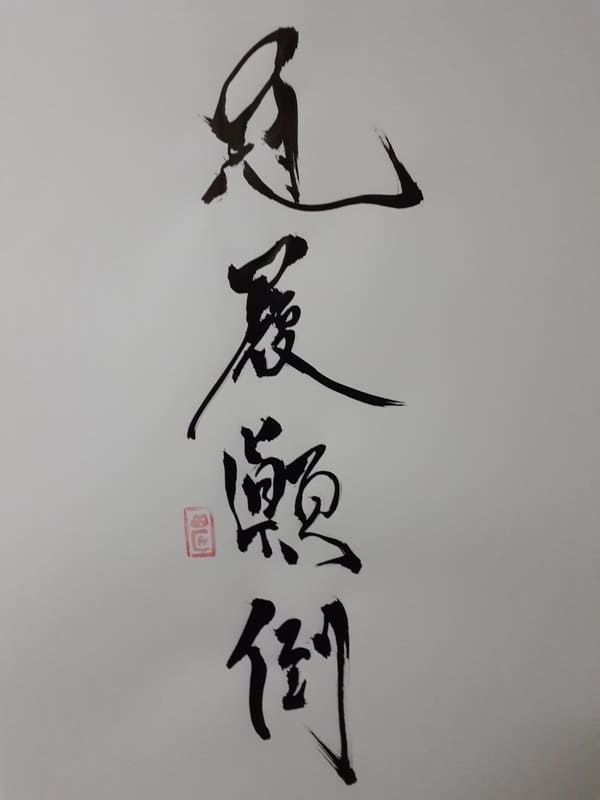 冠履顛倒